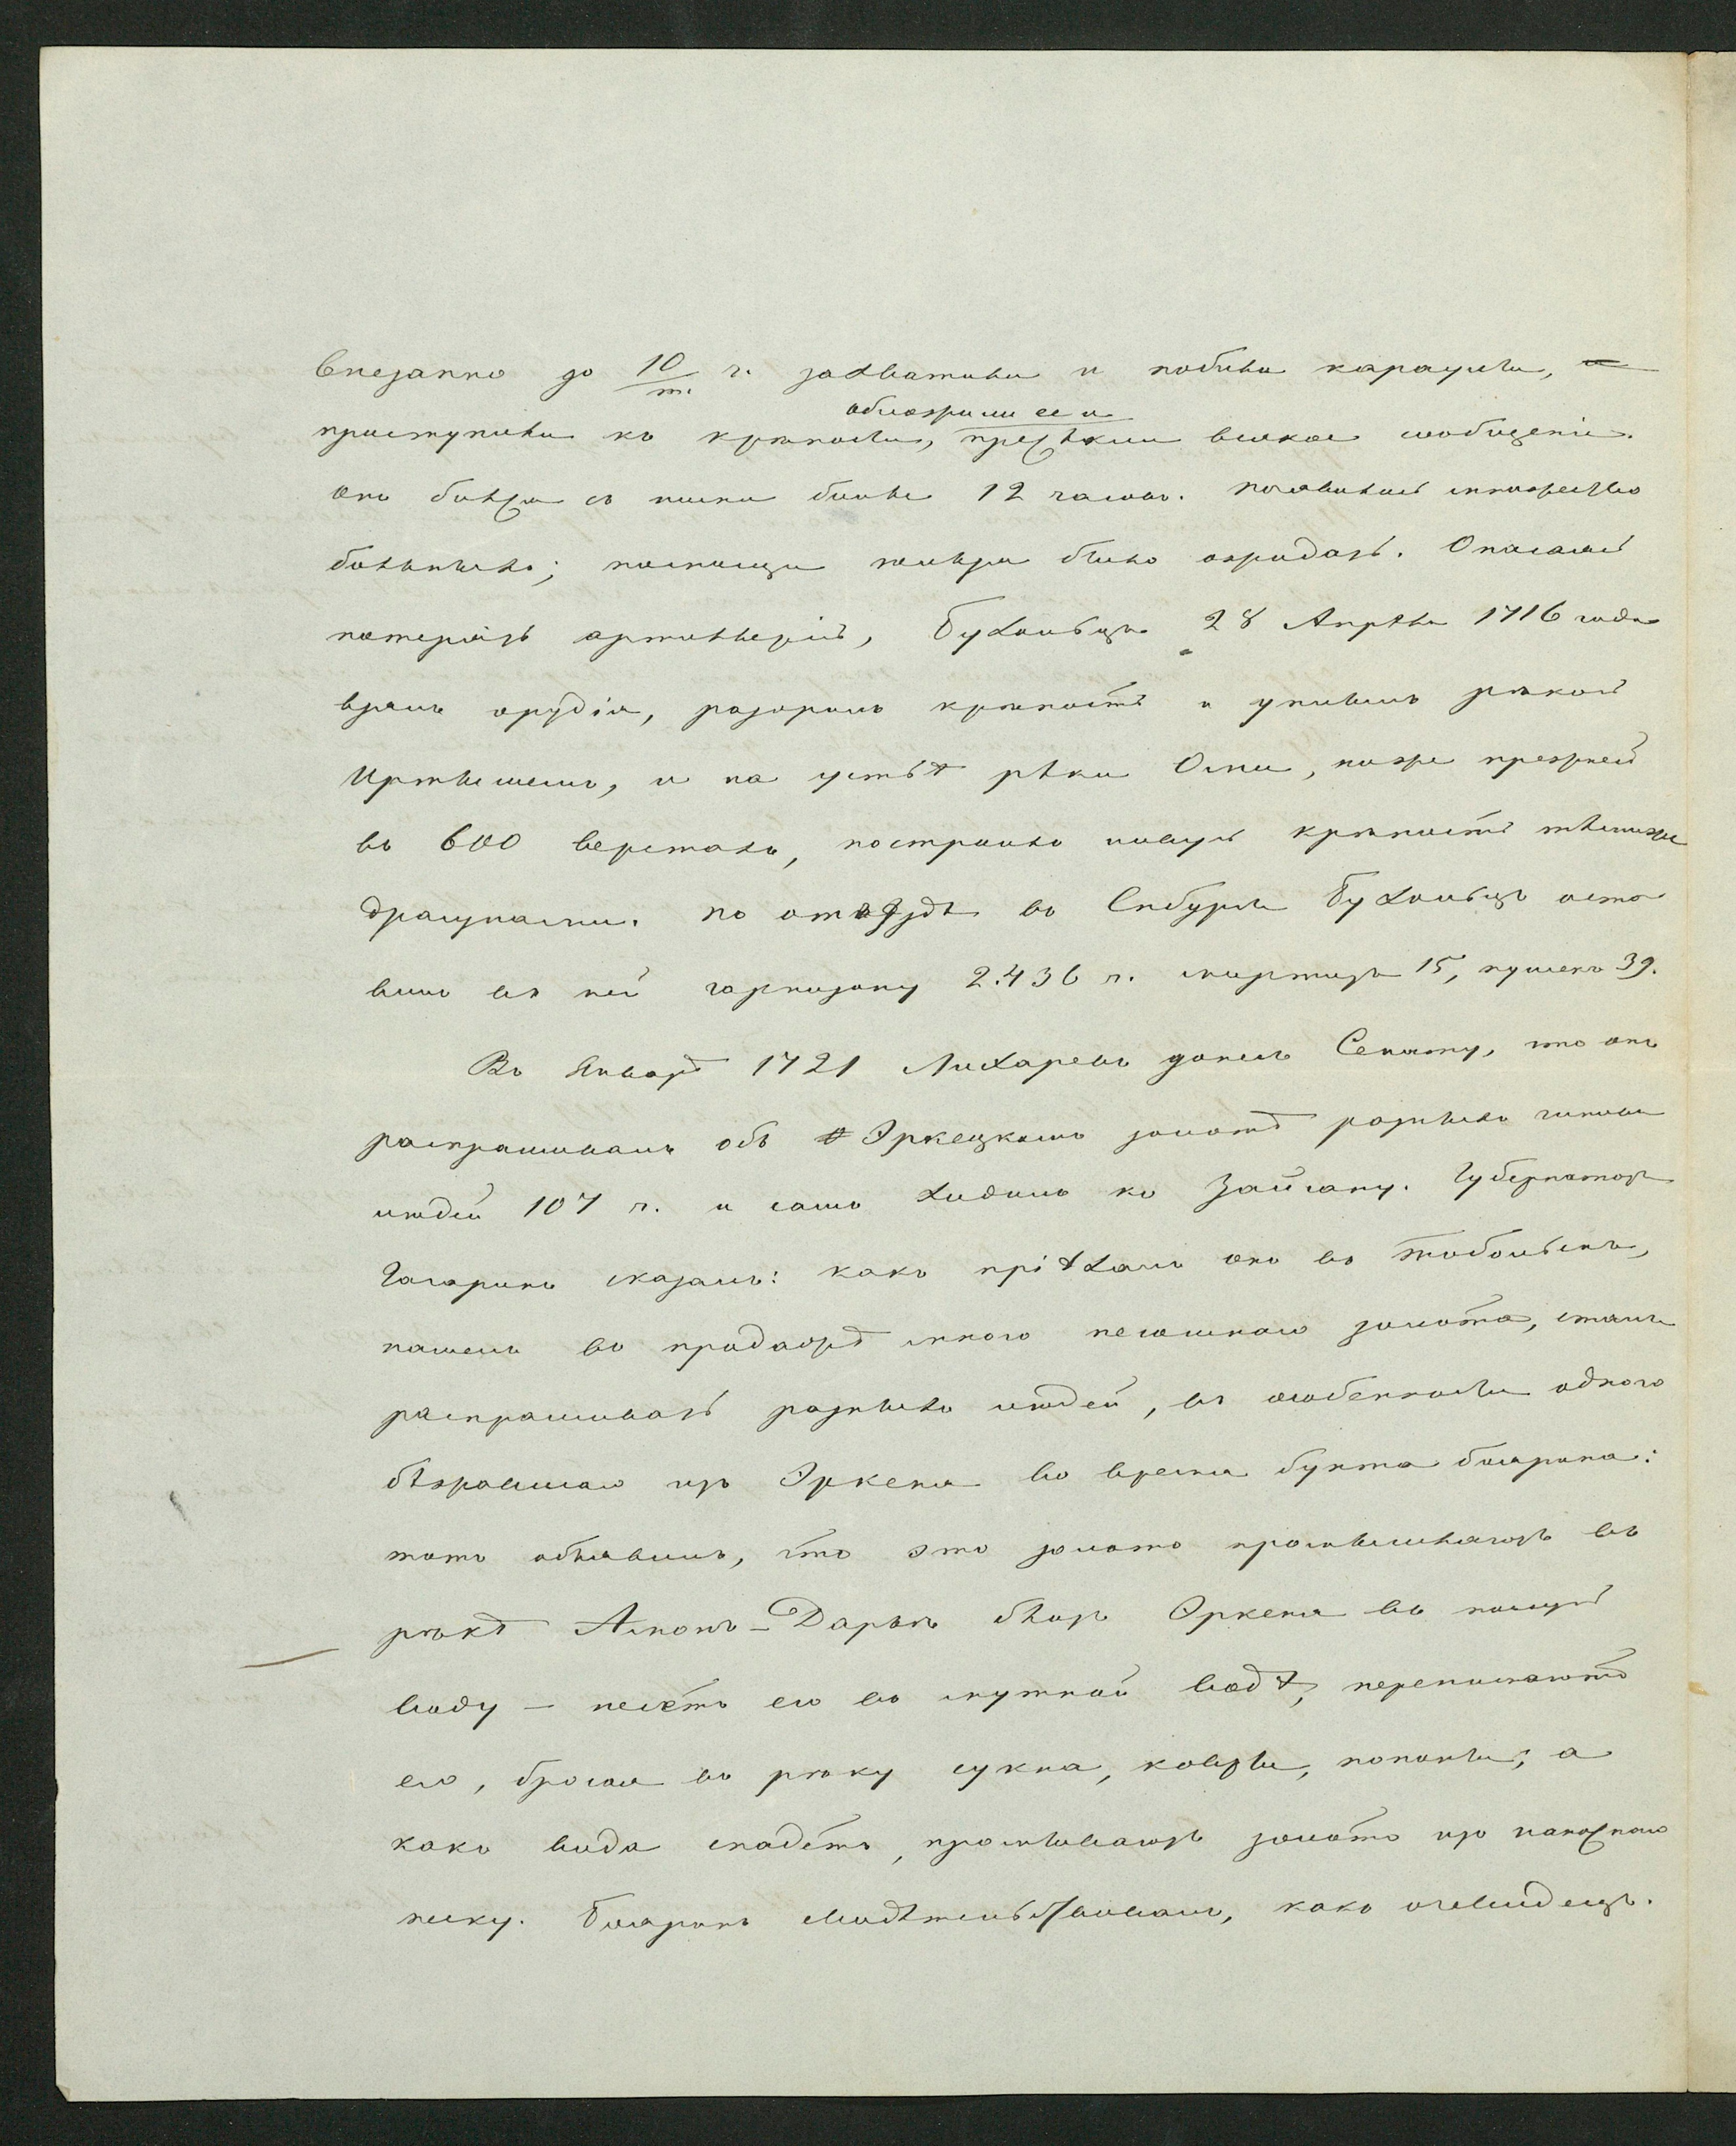 внезапно до 10/т. ч. захватили и побили караулы, и
обложили ее и
приступили къ крѣпости, пресѣкли всякое сообщеніе.
онъ бился съ ними болѣе 12 часовъ. появилось множество
больныхъ; помощи нельзя было ожидать. Опасаясь
потерять артиллерію, Бухольцъ 28 Апрѣля 1716 года
взялъ орудія, разорилъ крѣпость и уплылъ рѣкой
Иртышемъ, и на устьѣ рѣки Оми, ниже прежней
въ 600 верстахъ, построилъ новую крѣпость тѣмиже
драгунами. по отъѣздѣ въ Спбургъ Бухольцъ оста
вилъ въ ней гарнизону 2.436 ч. мортиръ 15, пушекъ 39.
Въ Январѣ 1721 Лихаревъ донесъ Сенату, что онъ
распрашивалъ объ Эркецкомъ золотѣ разныхъ чиновъ
людей 107 ч. и самъ ходилъ къ Зайсану. Губернаторъ
Гагаринъ сказалъ: какъ пріѣхалъ онъ въ Тобольскъ,
нашелъ въ продажѣ много песошнаго золота, сталъ
распрашивать разныхъ людей, въ особенности одного
бѣжавшаго изъ Эркена во время бунта боярина:
тотъ объявилъ, что это золото промышляютъ въ
рѣкѣ Аммонъ-Дарьѣ близь Эркена въ полую
воду — несётъ его въ мутной водѣ, перенимаютъ
его, бросая въ рѣку сукна, ковры, попоны; а
какъ вода спадётъ, промываютъ золото изъ наноснаго
песку. Бояринъ свидѣтельствовалъ, какъ очевидецъ.